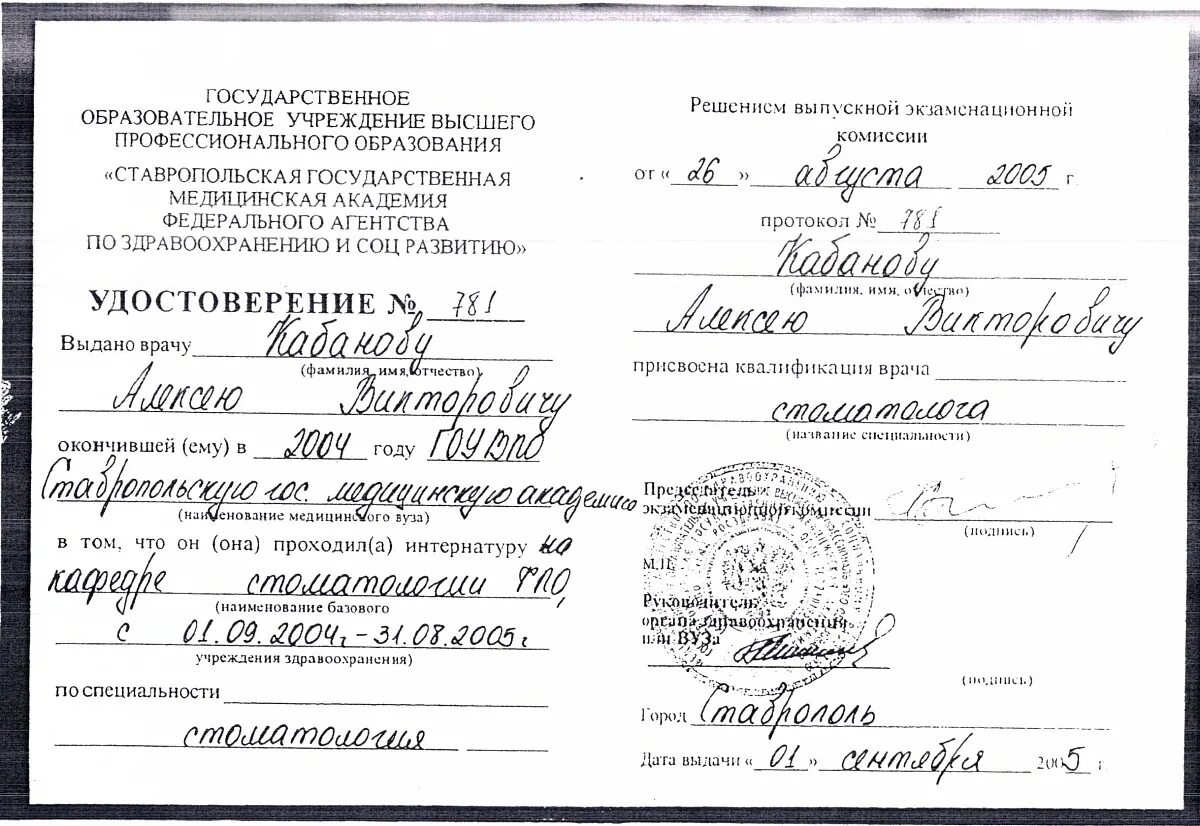 ГОСУДАРСТВЕННОЕ
ОБРАЗОВАТЕЛЬНОЕ УЧРЕЖДЕНИЕ ВЫСШЕГО
ПРОФЕССИОНАЛЬНОГО ОБРАЗОВАНИЯ
«СТАВРОПОЛЬСКАЯ ГОСУДАРСТВЕННАЯ
МЕДИЦИНСКАЯ АКАДЕМИЯ
ФЕДЕРАЛЬНОГО АГЕНТСТВА
ПО ЗДРАВООХРАНЕНИЮ И СОЦ РАЗВИТИЮ»
УДОСТОВЕРЕНИЕ № 781
Выдано врачу Кабанову
(фамилия, имя, отчество)
Алексею Викторовичу
окончившей (ему) в 2004 году ГОУ ВПО
Ставропольскую гос. медицинскую академию
(наименование медицинского вуза)
в том, что он (она) проходил(а) интернатуру на
кафедре стоматологии ФПО,
(наименование базового
с 01.09.2004г - 31.08.2005г
учреждения здравоохранения)
по специальности
стоматология
Решением выпускной экзаменационной
комиссии
от « 26 » августа 2005 г
протокол № 781
Кабанову
(фамилия, имя, отчество)
Алексею Викторовичу
присвоена квалификация врача
стоматолога
(название специальности)
Председатель
экзаменационной комиссии
(подпись)
М.П.
Руководитель
органа здравоохранения
или ВУЗа
(подпись)
Город Ставрополь
Дата выдачи « 01 » сентября 2005 г.